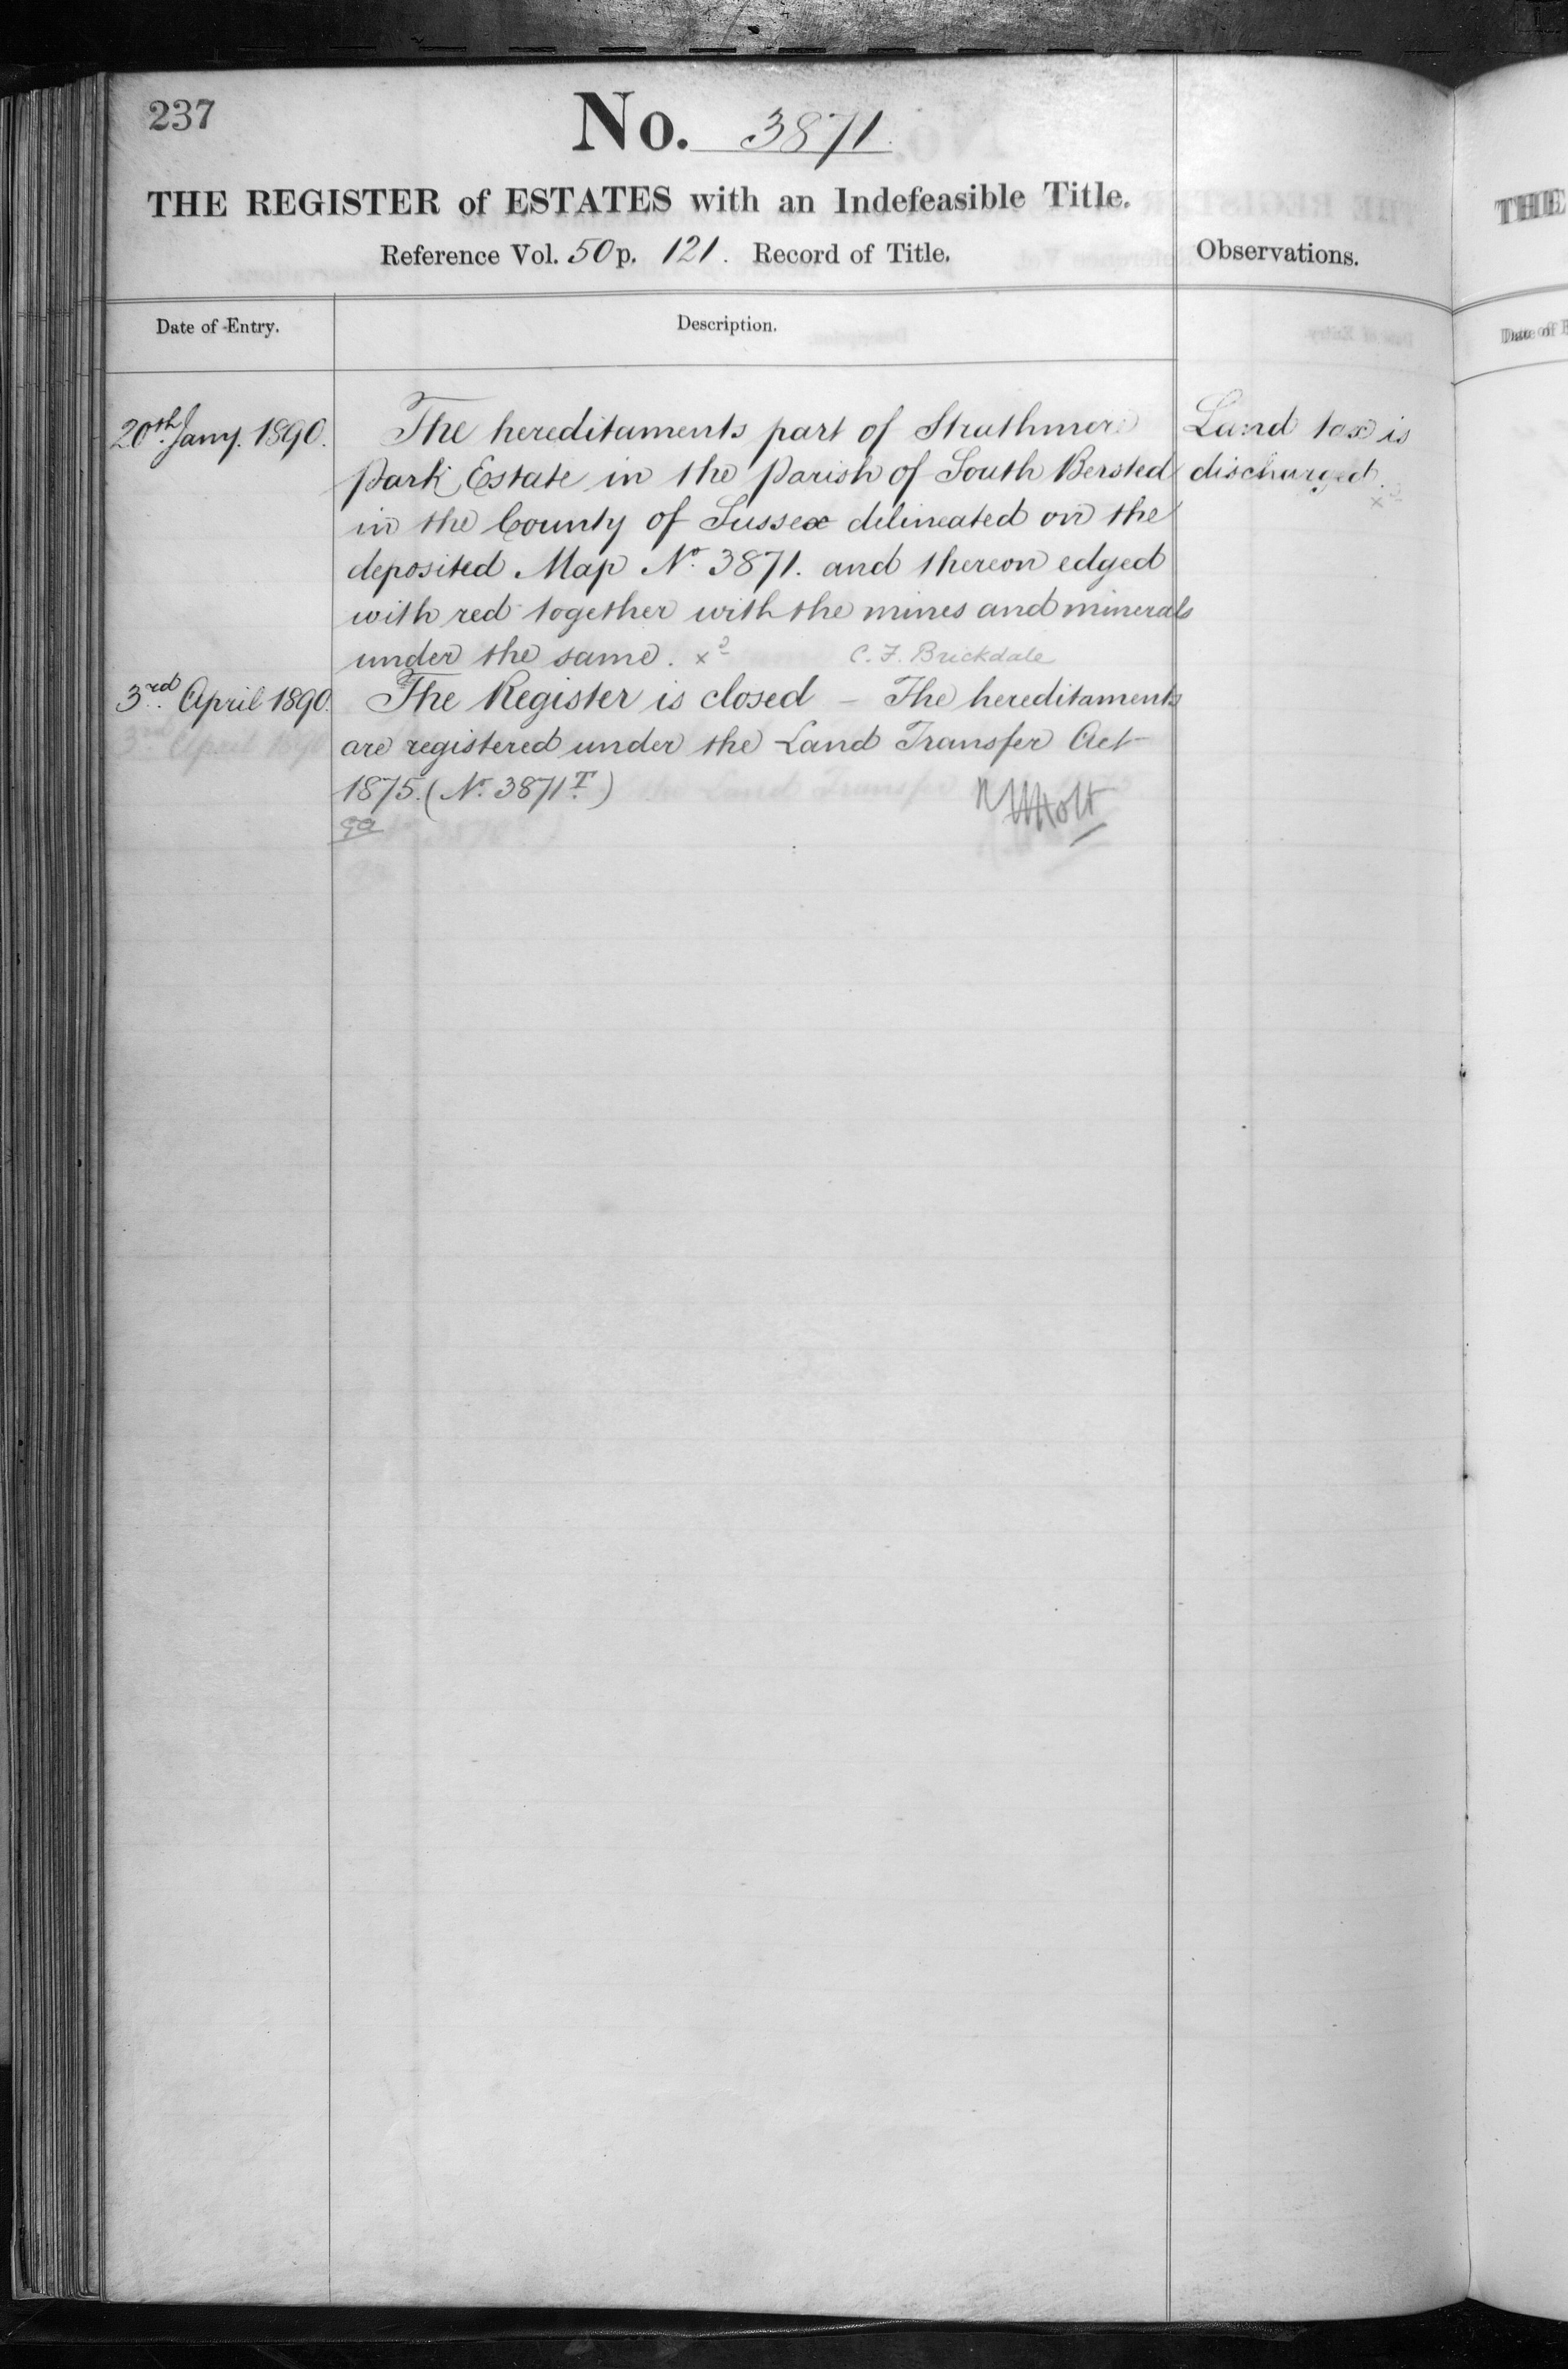 237
No. 3871.
THE REGISTER of ESTATES with an Indefeasible Title.
Reference Vol. 50 p. 121. Record of Title.
Observations.
Date of Entry.
Description.
20th Jany. 1890.
The hereditaments part of Strathmore
Park Estate in the Parish of South Bersted
in the County of Sussex delineated on the
deposited Map No. 3871. and thereon edged
with red together with the mines and minerals
under the same. x2 C. F. Brickdale
Land tax is
discharged.
x3
3rd April 1890.
The Register is closed – The hereditaments
are registered under the Land Transfer Act
1875. (No. 3871T)
Holt
THE
Date of E